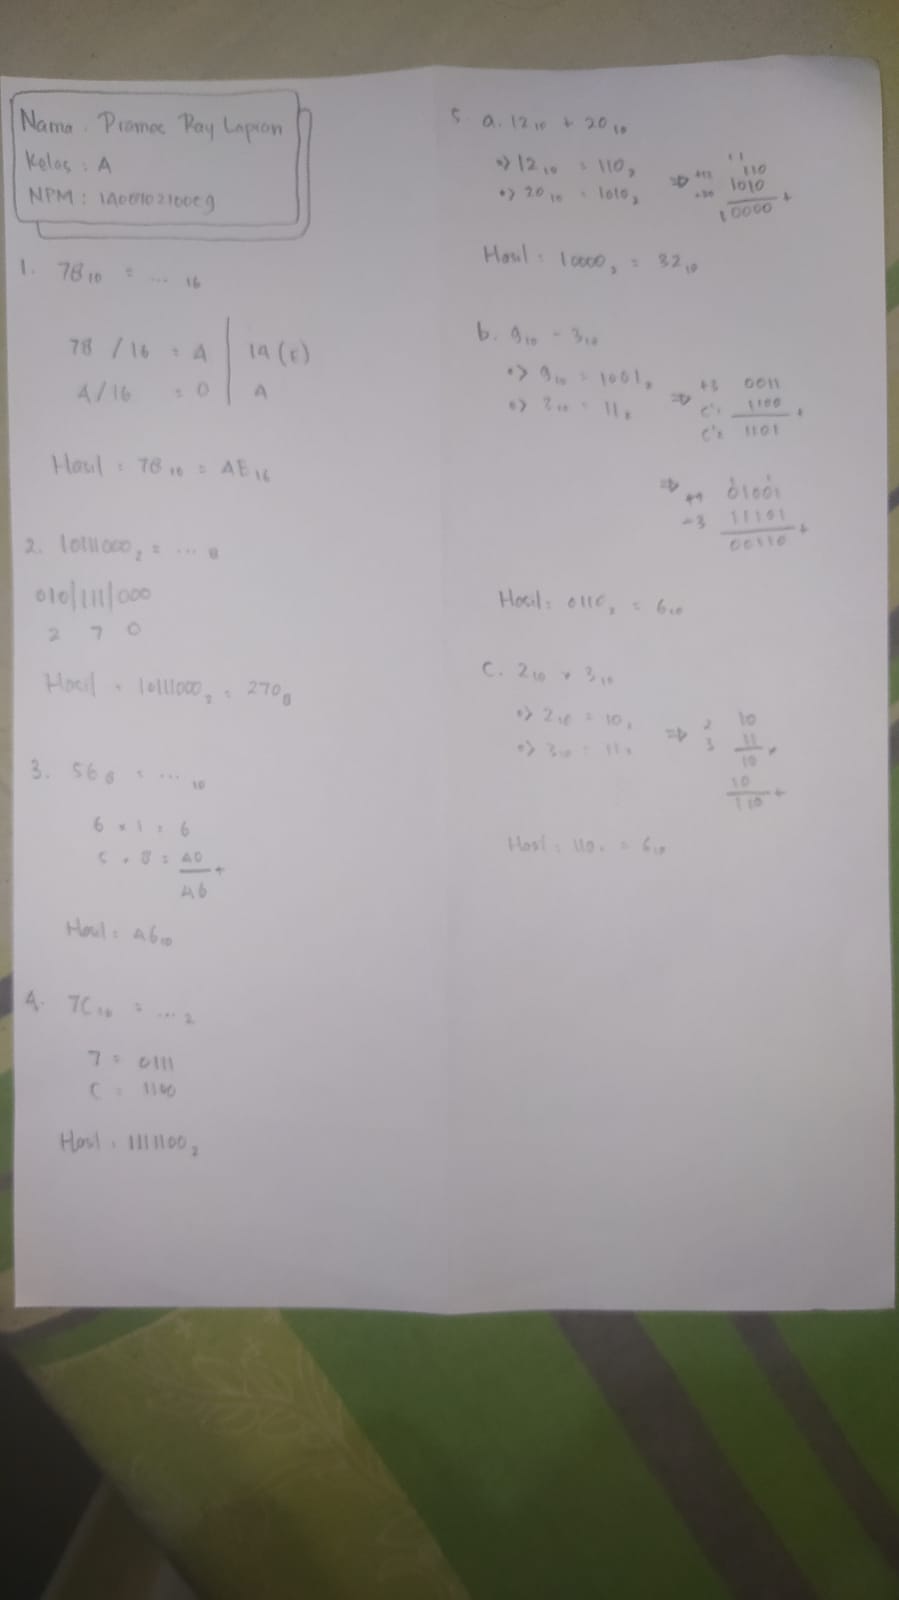 Nama : Pramoe Ray Lapian
Kelas : A
NPM :
1. 78₁₀ = ... ₁₆
78 / 16 = 4 | 14 (E)
4/16 = 0 | 4
Hasil : 78₁₀ = 4E₁₆
2. 10111000₂ = ... ₈
010/111/000
2 7 0
Hasil = 10111000₂ = 270₈
3. 56₈ = ... ₁₀
6 × 1 = 6
5 × 8 = 40 +
46
Hasil = 46₁₀
4. 7C₁₆ = ... ₂
7 = 0111
C = 1100
Hasil = 1111100₂
5. a. 12₁₀ + 20₁₀
=> 12₁₀ = 110₂ => +12 110
=> 20₁₀ = 1010₂ +20 1010 +
10000
Hasil : 10000₂ = 32₁₀
b. 9₁₀ - 3₁₀
=> 9₁₀ = 1001₂ => +3 0011
=> 3₁₀ = 11₂ C'1 1100 +
C'2 1101
=> +9 01001
-3 11101 +
00110
Hasil : 0110₂ = 6₁₀
c. 2₁₀ × 3₁₀
=> 2₁₀ = 10₂ => 2 10
=> 3₁₀ = 11₂ 3 11 ×
10
10 +
110
Hasil : 110₂ = 6₁₀